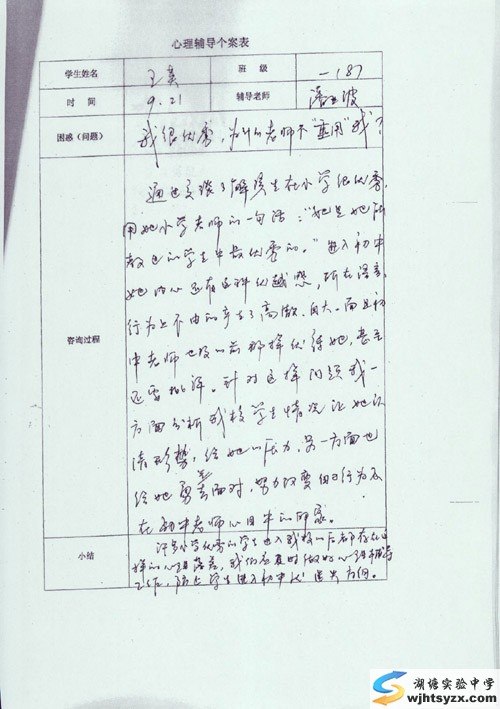 心理辅导个案表
学生姓名 王 班级 一(8)
时间 9.21 辅导老师 潘 波
困惑(问题) 我很优秀,为什么老师不"重用"我?
咨询过程
通过交谈了解该生在小学很优秀,
用她小学老师的一句话:"她是她所
教过的学生中最优秀的。"进入初中
她内心还有这种优越感,所在语言、
行为上不由的产生了高傲、自大。而且初
中老师也没以前那样优待她,甚至
还要批评。针对这样问题我一
方面分析我校学生情况让她认
清形势,给她以压力,另一方面也
给她勇于面对,努力改变自己行为及
在初中老师心目中的印象。
小结
许多小学优秀的学生进入我校以后都存在这
样的心理落差,我们应及时做好心理辅导
工作,防止学生进入初中以 迷失方向。
湖塘实验中学
wjhtsyzx.com